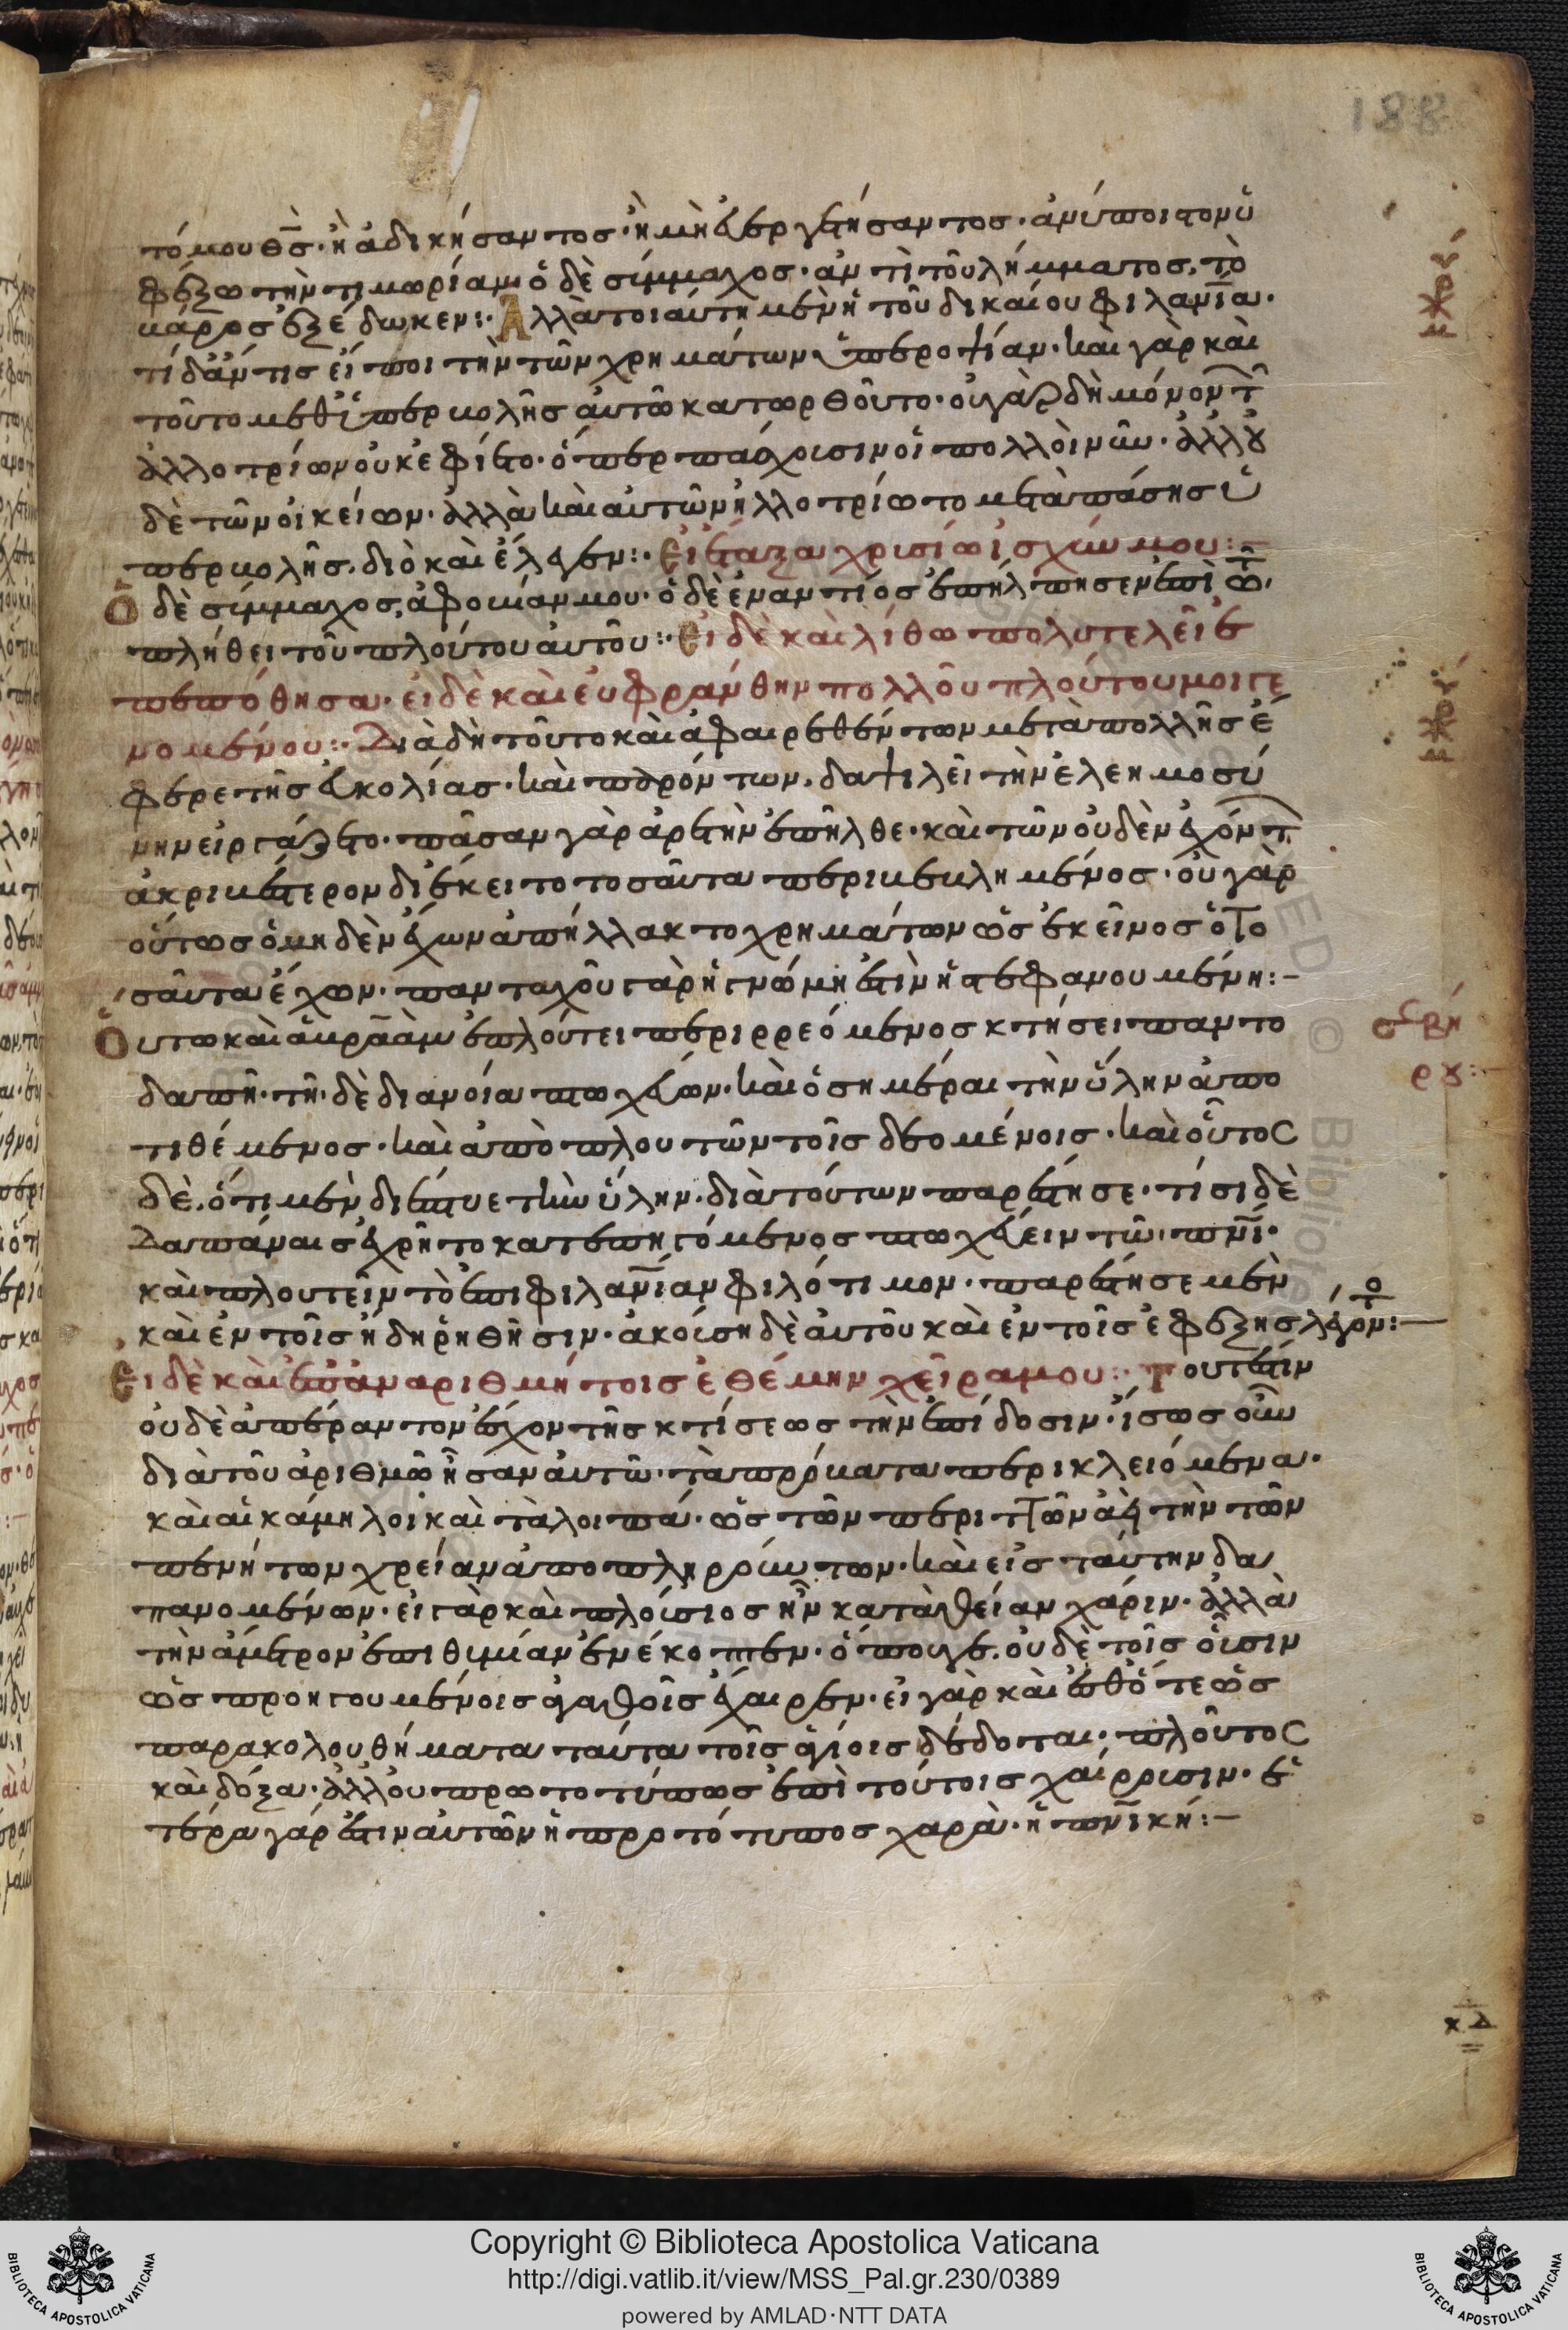 188
τόμου θς· ἢ ἀδικήσαντος· ἢ μὴ εὐεργετήσαντος· ἀνύποιστον ὑ
φέξω τὴν τιμωρίαν· ὁ δὲ σύμμαχος· ἀντὶ τοῦ λήμματος, τὸ
βάρος ἐξέδωκεν:· Ἀλλὰ τοιαύτη μὲν ἡ τοῦ δικαίου φιλανία·
τί δ' ἄν τις εἴποι τὴν τῶν χρημάτων ὑπεροψίαν· καὶ γὰρ καὶ
τοῦτο μεθ' ὑπερβολῆς αὐτῶ κατωρθοῦτο· οὐ γὰρ δὴ μόνον τ
ἀλλοτρίων οὐκ ἐφίετο· ὅπερ πάσχουσιν οἱ πολλοὶ νῦν· ἀλλ' οὐ
δὲ τῶν οἰκείων· ἀλλὰ καὶ αὐτῶν ἠλλοτρίωτο μετὰ πάσης ὑ
περβολῆς. διὸ καὶ ἔλεγεν:· Εἰ ἔταξα χρυσίω ἰσχύν μου:–
Ὁ δὲ σύμμαχος, ἀφοβίαν μου· ὁ δὲ ἐναντίος ἐπήλπησεν ἐπὶ τῶ
πλήθει τοῦ πλούτου αὐτοῦ:· Εἰ δὲ καὶ λίθω πολυτελεῖ ἐ
πεπόθησα· εἰ δὲ καὶ εὐφράνθην πολλοῦ πλούτου μοι γε
νομένου:· Διὰ δὴ τοῦτο καὶ ἀφαιρεθέντων μετὰ πολλῆς ἔ
φερε τῆς εὐκολίας· καὶ παρόντων, δαψιλεῖ τὴν ἐλεημοσύ
νην εἰργάζετο· πᾶσαν γὰρ ἀρετὴν ἐπῆλθε· καὶ τῶν οὐδὲν ἐχόντ
ἀκριβέστερον διέκειτο τοσαῦτα περιβεβλημένος· οὐ γὰρ
οὕτως ὁ μηδὲν ἔχων ἀπήλλακτο χρημάτων ὡς ἐκεῖνος ὁ το
σαῦτα ἔχων· πανταχοῦ γὰρ ἡ γνώμη ἐστὶν ἡ στεφανουμένη:–
Οὕτω καὶ ἁβραὰμ ἐπλούτει περιρρεόμενος κτήσει παντο
δαπῆ· τῆ δὲ διανοία πτωχεύων· καὶ ὁσημέραι τὴν ὕλην ἀπο
τιθέμενος· καὶ ἀποπλουτῶν τοῖς δεομένοις· καὶ οὗτος
δὲ. ὅτι μὲν διέπτυε τὴν ὕλην· διὰ τούτων παρέστησε· τίσι δὲ
δαπάναις ἐχρῆτο κατεπηγόμενος πτωχεύειν τῶ πνι·
καὶ πλουτεῖν τὸ ἐπὶ φιλανίαν φιλότιμον· παρέστησε μὲν
καὶ ἐν τοῖς ἤδη ρηθῆσιν· ἀκούση δὲ αὐτοῦ καὶ ἐν τοῖς ἐφεξῆς λέγοντο:–
Εἰ δὲ καὶ ἐπ' ἀναριθμήτοις ἐθέμην χεῖρά μου:· Τουτέστιν
οὐδὲ ἀπέραντον ἔσχον τῆς κτίσεως τὴν ἐπίδοσιν· ἴσως οὖν
διὰ τοῦ ἀριθμῶ ἦσαν αὐτῶ· τὰ πρόβατα περικλειόμενα·
καὶ αἱ κάμηλοι καὶ τὰ λοιπά· ὡς τῶν περιττῶν ἀεὶ τὴν τῶν
πενήτων χρείαν ἀποπληρούντων· καὶ εἰς ταύτην δα
πανομένων· εἰ γὰρ καὶ πλούσιος ἦν κατὰ θείαν χάριν· ἀλλὰ
τὴν ἄμετρον ἐπιθυμίαν ἐνέκοπτεν· ὅπουγε. οὐδὲ τοῖς οὖσιν
ὡς προηγουμένοις ἀγαθοῖς ἔχαιρεν· εἰ γὰρ καὶ ἔσθ' ὅτε ὡς
παρακολουθήματα ταῦτα τοῖς ἁγίοις δέδοται· πλοῦτος
καὶ δόξα· ἀλλ' οὐ πρωτοτύπως ἐπὶ τούτοις χαίρουσιν· ἑ
τέρα γάρ ἐστιν αὐτῶν ἡ πρωτότυπος χαρὰ· ἡ πνικὴ:–
Copyright © Biblioteca Apostolica Vaticana
http://digi.vatlib.it/view/MSS_Pal.gr.230/0389
powered by AMLAD·NTT DATA